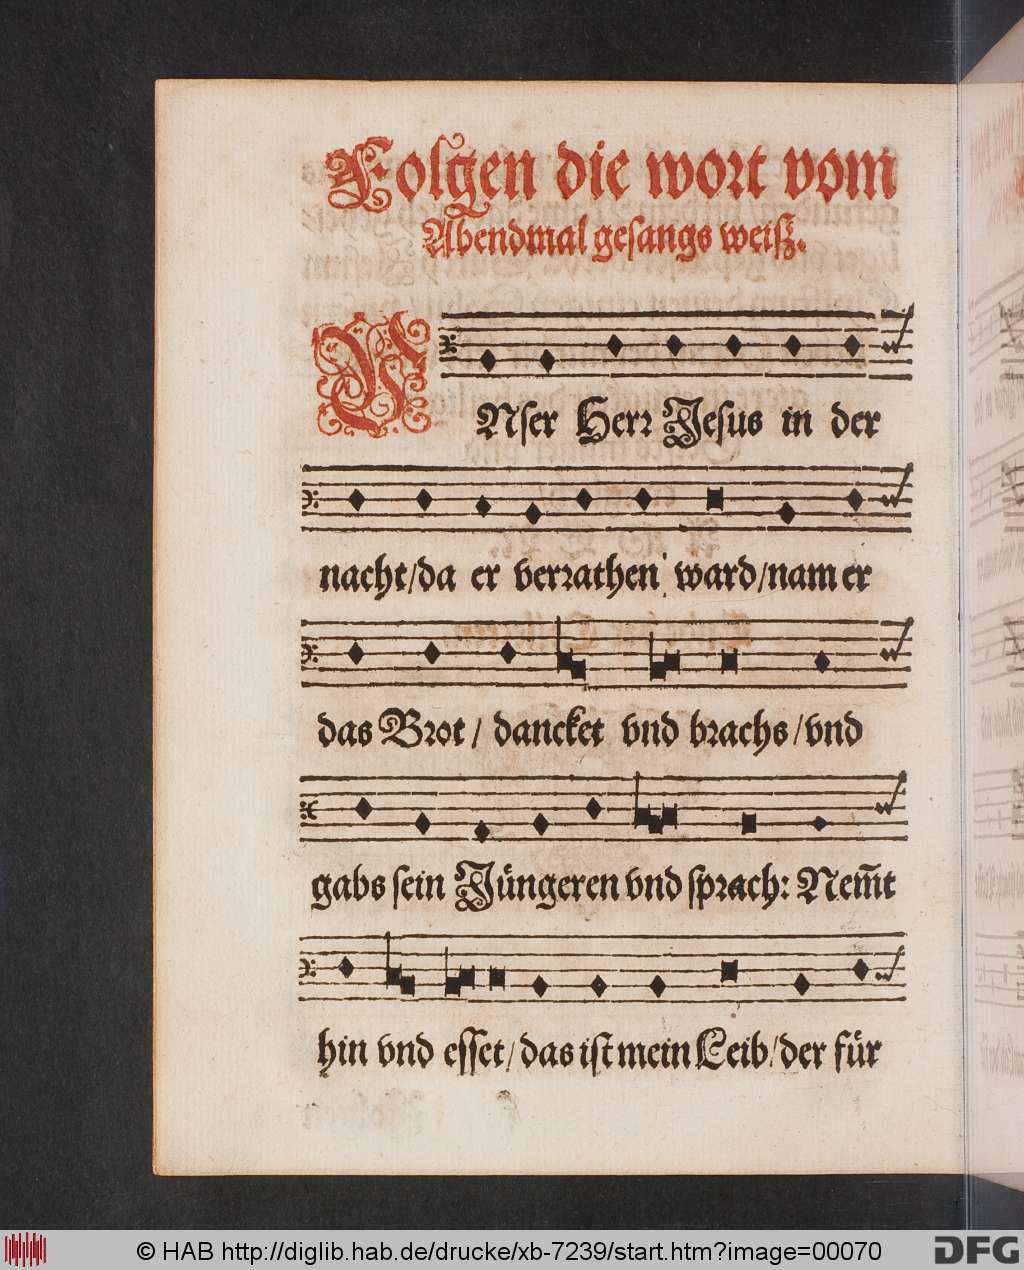 Folgen die wort vom
Abendmal gesangs weiß.
VNser Herr Jesus in der
nacht/da er verrathen ward/nam er
das Brot/ dancket vnd brachs/vnd
gabs sein Jüngeren vnd sprach: Nem̃t
hin vnd esset/das ist mein Leib/der für
© HAB http://diglib.hab.de/drucke/xb-7239/start.htm?image=00070
DFG